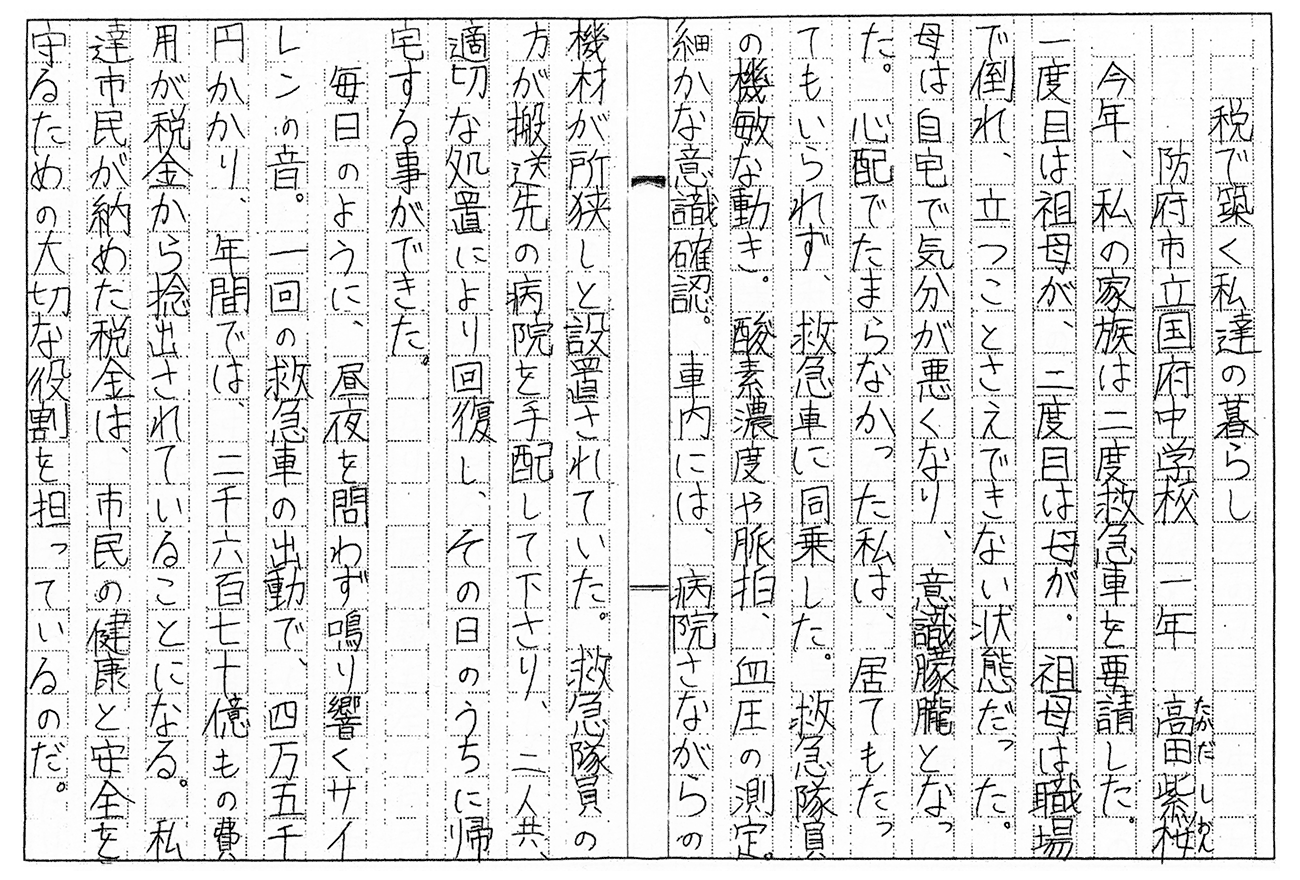 税で築く私達の暮らし
防府市立国府中学校 一年 高田紫桜
たかだ しおん
今年、私の家族は二度救急車を要請した。
一度目は祖母が、二度目は母が。祖母は職場
で倒れ、立つことさえできない状態だった。
母は自宅で気分が悪くなり、意識朦朧となっ
た。心配でたまらなかった私は、居てもたっ
てもいられず、救急車に同乗した。救急隊員
の機敏な動き。酸素濃度や脈拍、血圧の測定。
細かな意識確認。車内には、病院さながらの
機材が所狭しと設置されていた。救急隊員の
方が搬送先の病院を手配して下さり、二人共、
適切な処置により回復し、その日のうちに帰
宅する事ができた。
毎日のように、昼夜を問わず鳴り響くサイ
レンの音。一回の救急車の出動で、四万五千
円かかり、年間では、二千六百七十億もの費
用が税金から捻出されていることになる。私
達市民が納めた税金は、市民の健康と安全を
守るための大切な役割を担っているのだ。